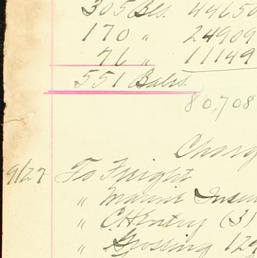 305 Bls. 44650
170 " 24909
76 " 11149
551 Bales.
80,708
Charg
9/27 To Freight
" Marine Insu
" (3
" 129